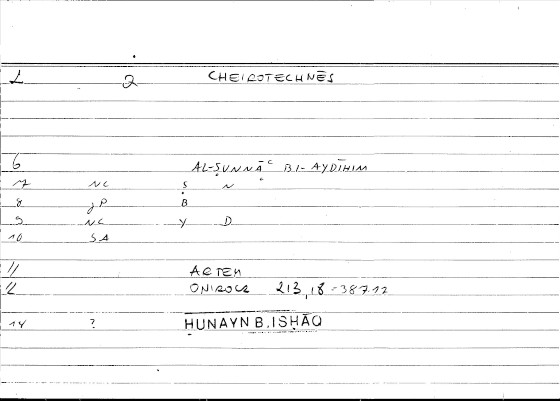 1 2 CHEIROTECHNĒS
6 AL-ṢUNNĀʿ BI-AYDĪHIM
7 NC Ṣ N
8 JP B
9 NC Y D
10 SA
11 ARTEM
12 ONIROCR 213,18-387.12
14 ? ḤUNAYN B. ISḤĀQ